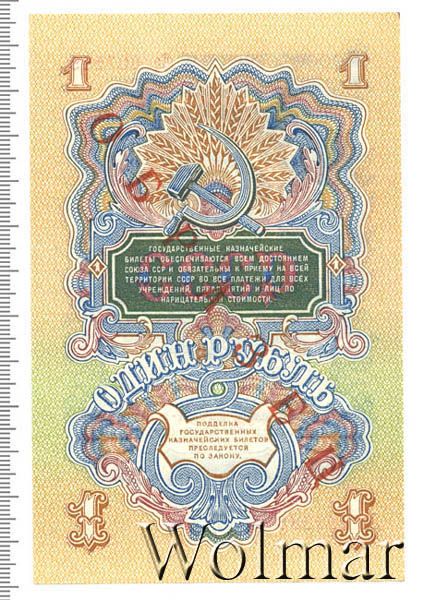 1 1
ОБРАЗЕЦ
ГОСУДАРСТВЕННЫЕ КАЗНАЧЕЙСКИЕ
БИЛЕТЫ ОБЕСПЕЧИВАЮТСЯ ВСЕМ ДОСТОЯНИЕМ
СОЮЗА ССР И ОБЯЗАТЕЛЬНЫ К ПРИЕМУ НА ВСЕЙ
ТЕРРИТОРИИ СССР ВО ВСЕ ПЛАТЕЖИ ДЛЯ ВСЕХ
УЧРЕЖДЕНИЙ, ПРЕДПРИЯТИЙ И ЛИЦ ПО
НАРИЦАТЕЛЬНОЙ СТОИМОСТИ.
1 1
ОДИН РУБЛЬ
ПОДДЕЛКА
ГОСУДАРСТВЕННЫХ
КАЗНАЧЕЙСКИХ БИЛЕТОВ
ПРЕСЛЕДУЕТСЯ
ПО ЗАКОНУ.
1 1
Wolmar